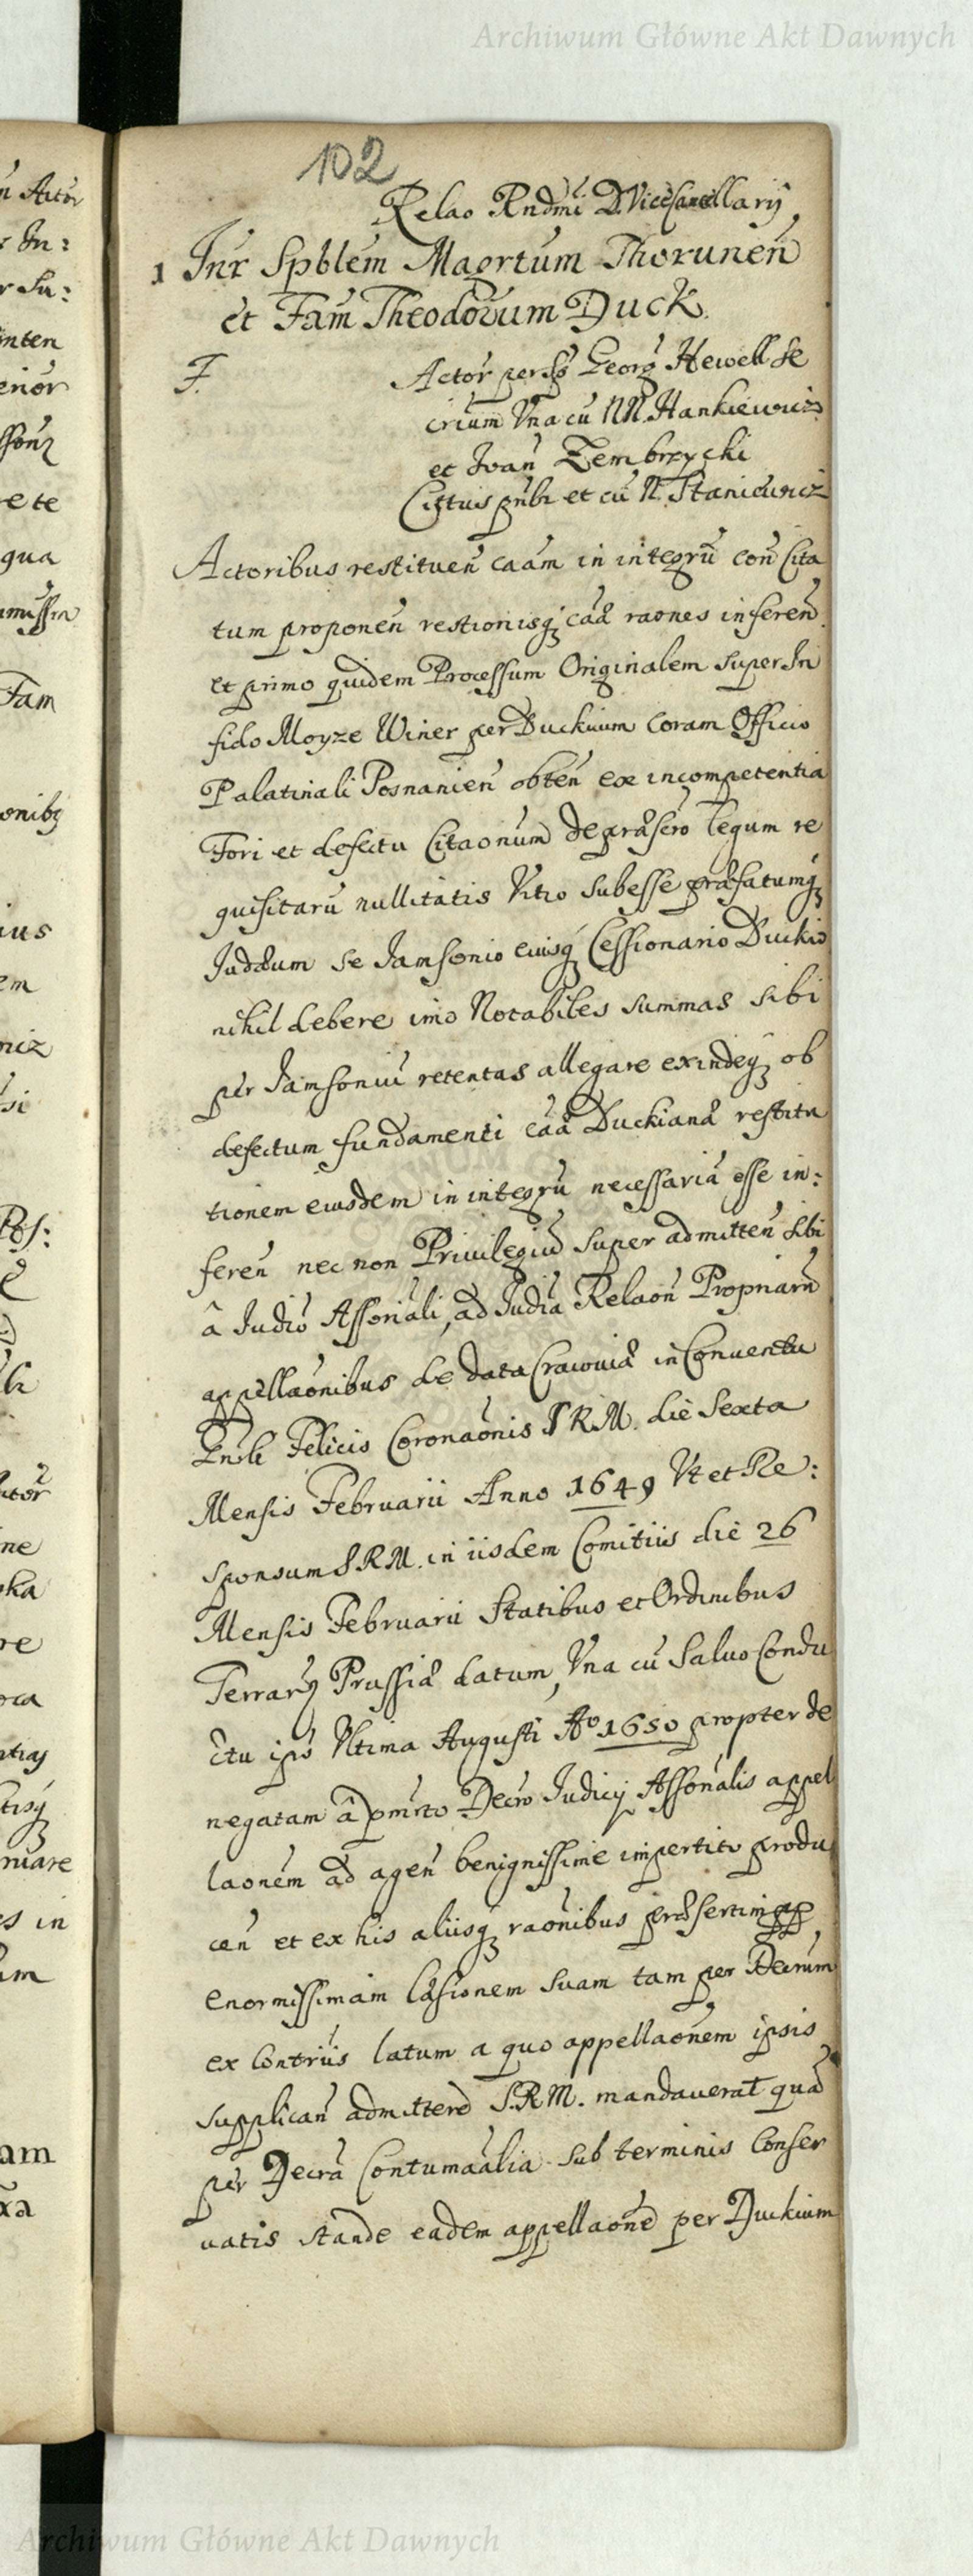 Archiwum Główne Akt Dawnych
102
Relao Rndmi D. ViceCancellarÿ
1 Inr Spblem Magrtum Thorunen
et Fam Theodorum Duck.
F. Actor perso Georg Hewell Se
crium Vna cu NN. Hankiewicz
et Joan Zembrzycki
Cittus pnbr et cu N. Stanicwicz
Actoribus restituen caam in integru con Cita
tum proponen restionisq caæ raones inferen
et primo quidem Processum Originalem super In
fido Moyze Winer per Duckium coram Officio
Palatinali Posnanien obten ex incompetentia
Fori et defectu Citaonum de præscro legum re
quisitaru nullitatis Vitio subesse præfatumq
Judæum se Jamsonio eiusq Cessionario Duckio
nihil debere imo Notabiles summas sibi
per Jamsoniu retentas allegare exindeq ob
defectum fundamenti caæ Duckianæ restitu
tionem eiusdem in integru necessaria esse in:
feren nec non Priuilegiu super admitten sibi
â Judio Assonali, ad Judia Relaon Propriaru
appellaonibus de data Cracouiæ in Conuentu
Pnsli Felicis Coronaonis S R M. die Sexta
Mensis Februarii Anno 1649 Vt et Re:
sponsum S R M. in iisdem Comitiis die 26
Mensis Februarii Statibus et Ordinibus
Terrarum Prussiæ datum, Vna cu Saluo Condu
ctu ipso Vltima Augusti Ao 1650 propter de
negatam â pmrto Decro Judicÿ Assonalis appel
laonem ad agen benignissime impertito produ
cen et ex his aliisq raonibus præsertim
enormissimam læsionem suam tam per Decrum
ex Contriis latum a quo appellaonem ipsis
supplican admittere S.R.M. mandauerat qua
per Decra Contumaalia sub terminis Conser
uatis stande eadem appellaone per Duckium
n Actor
r In:
r Su:
nten
erior
ete
qua
Fam
onibq
ius
em
niz
si
Pos:
ctor
ne
ska
re
oca
ruare
es in
um
am
xa
Archiwum Główne Akt Dawnych